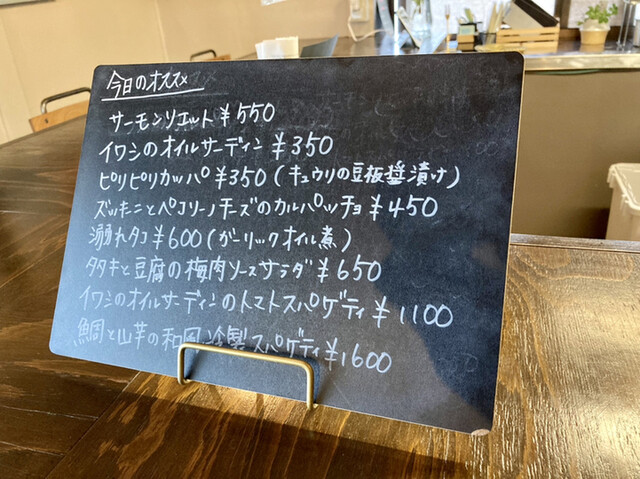 今日のオススメ
サーモンリエット ¥550
イワシのオイルサーディン ¥350
ピリピリカッパ ¥350(キュウリの豆板醤漬け)
ズッキーニとペコリーノチーズのカルパッチョ ¥450
溺れタコ ¥600(ガーリックオイル煮)
タタキと豆腐の梅肉ソースサラダ ¥650
イワシのオイルサーディンのトマトスパゲティ ¥1100
鯛と山芋の和風冷製スパゲティ ¥1600